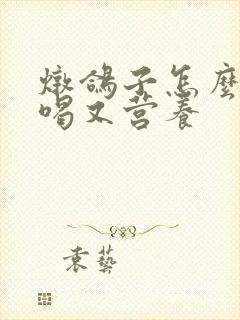 燉鴿子怎麼
喝又营養
袁藝